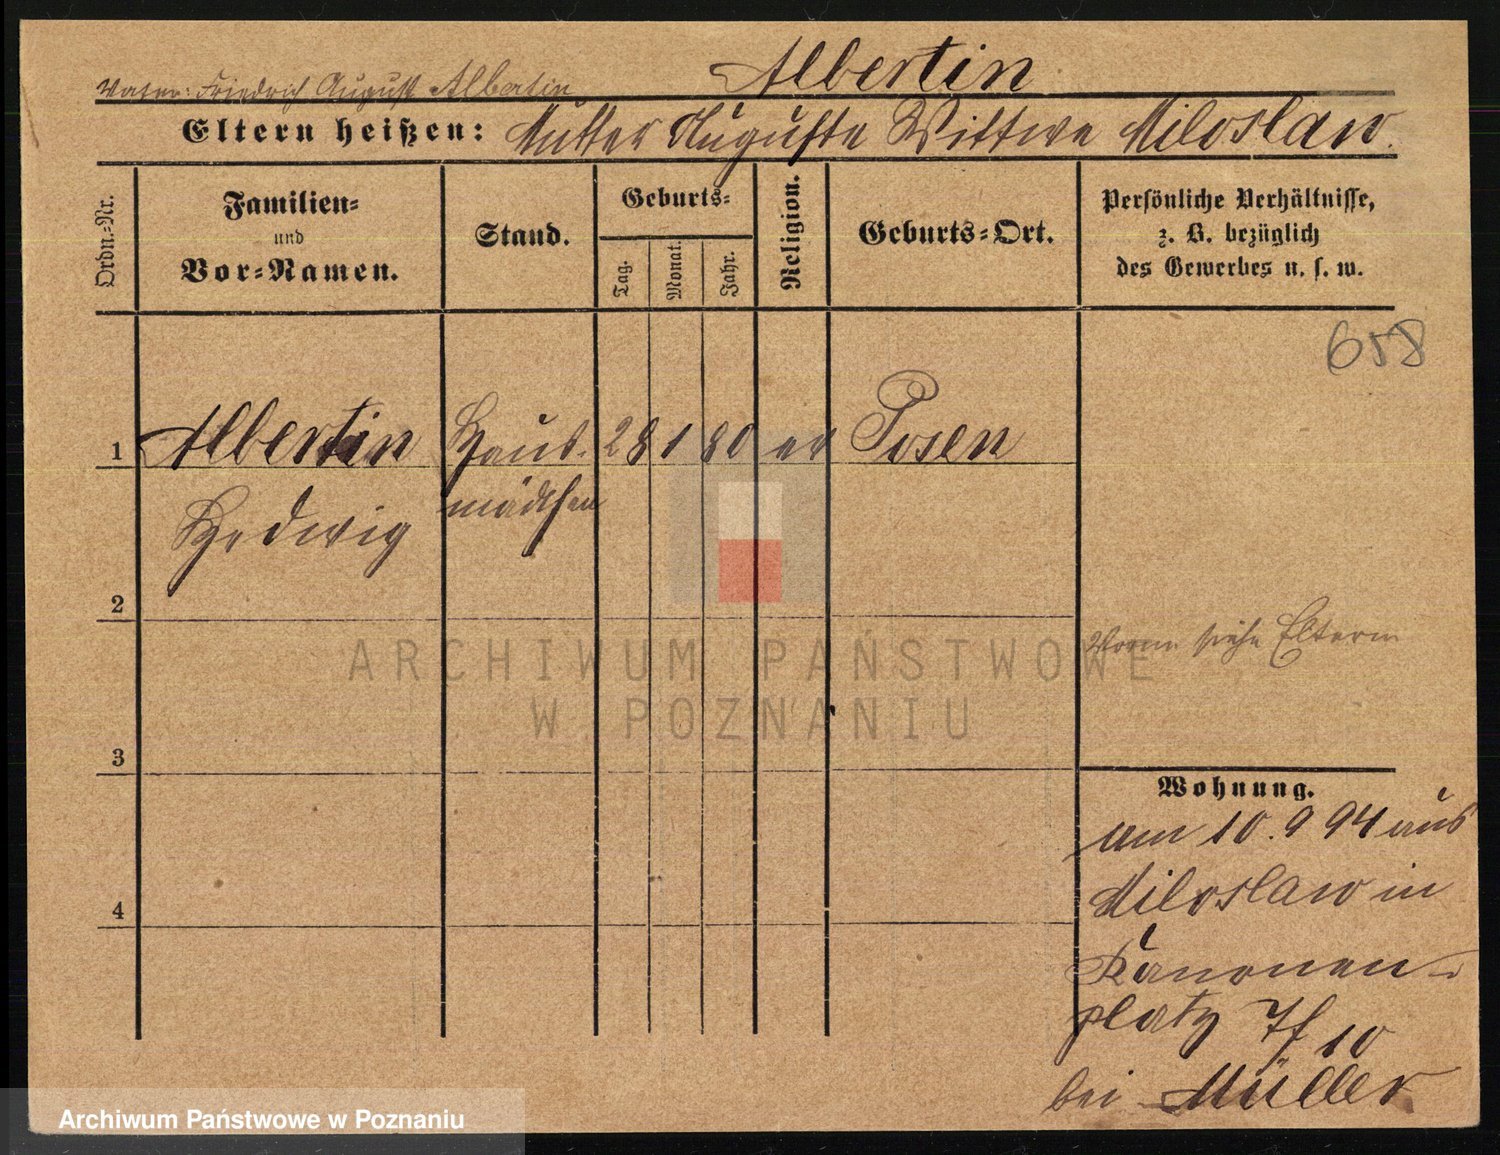 Albertin
Vater: Friedrich August Albertin
Eltern heißen: Mutter Auguste Wittwe Miloslaw.
Ordn.-Nr.
Familien-
und
Vor-Namen.
Stand.
Geburts-
Tag.
Monat.
Jahr.
Religion.
Geburts-Ort.
Persönliche Verhältnisse,
z. B. bezüglich
des Gewerbes u. s. w.
658
1 Albertin Haus- 28 1 80 ev Posen
Hedwig mädchen
2
siehe Eltern
ARCHIWUM PAŃSTWOWE
W POZNANIU
3
Wohnung.
am 10.9 94 aus
Miloslaw in
4
Kanonen-
platz 7/10
bei Müller
Archiwum Państwowe w Poznaniu